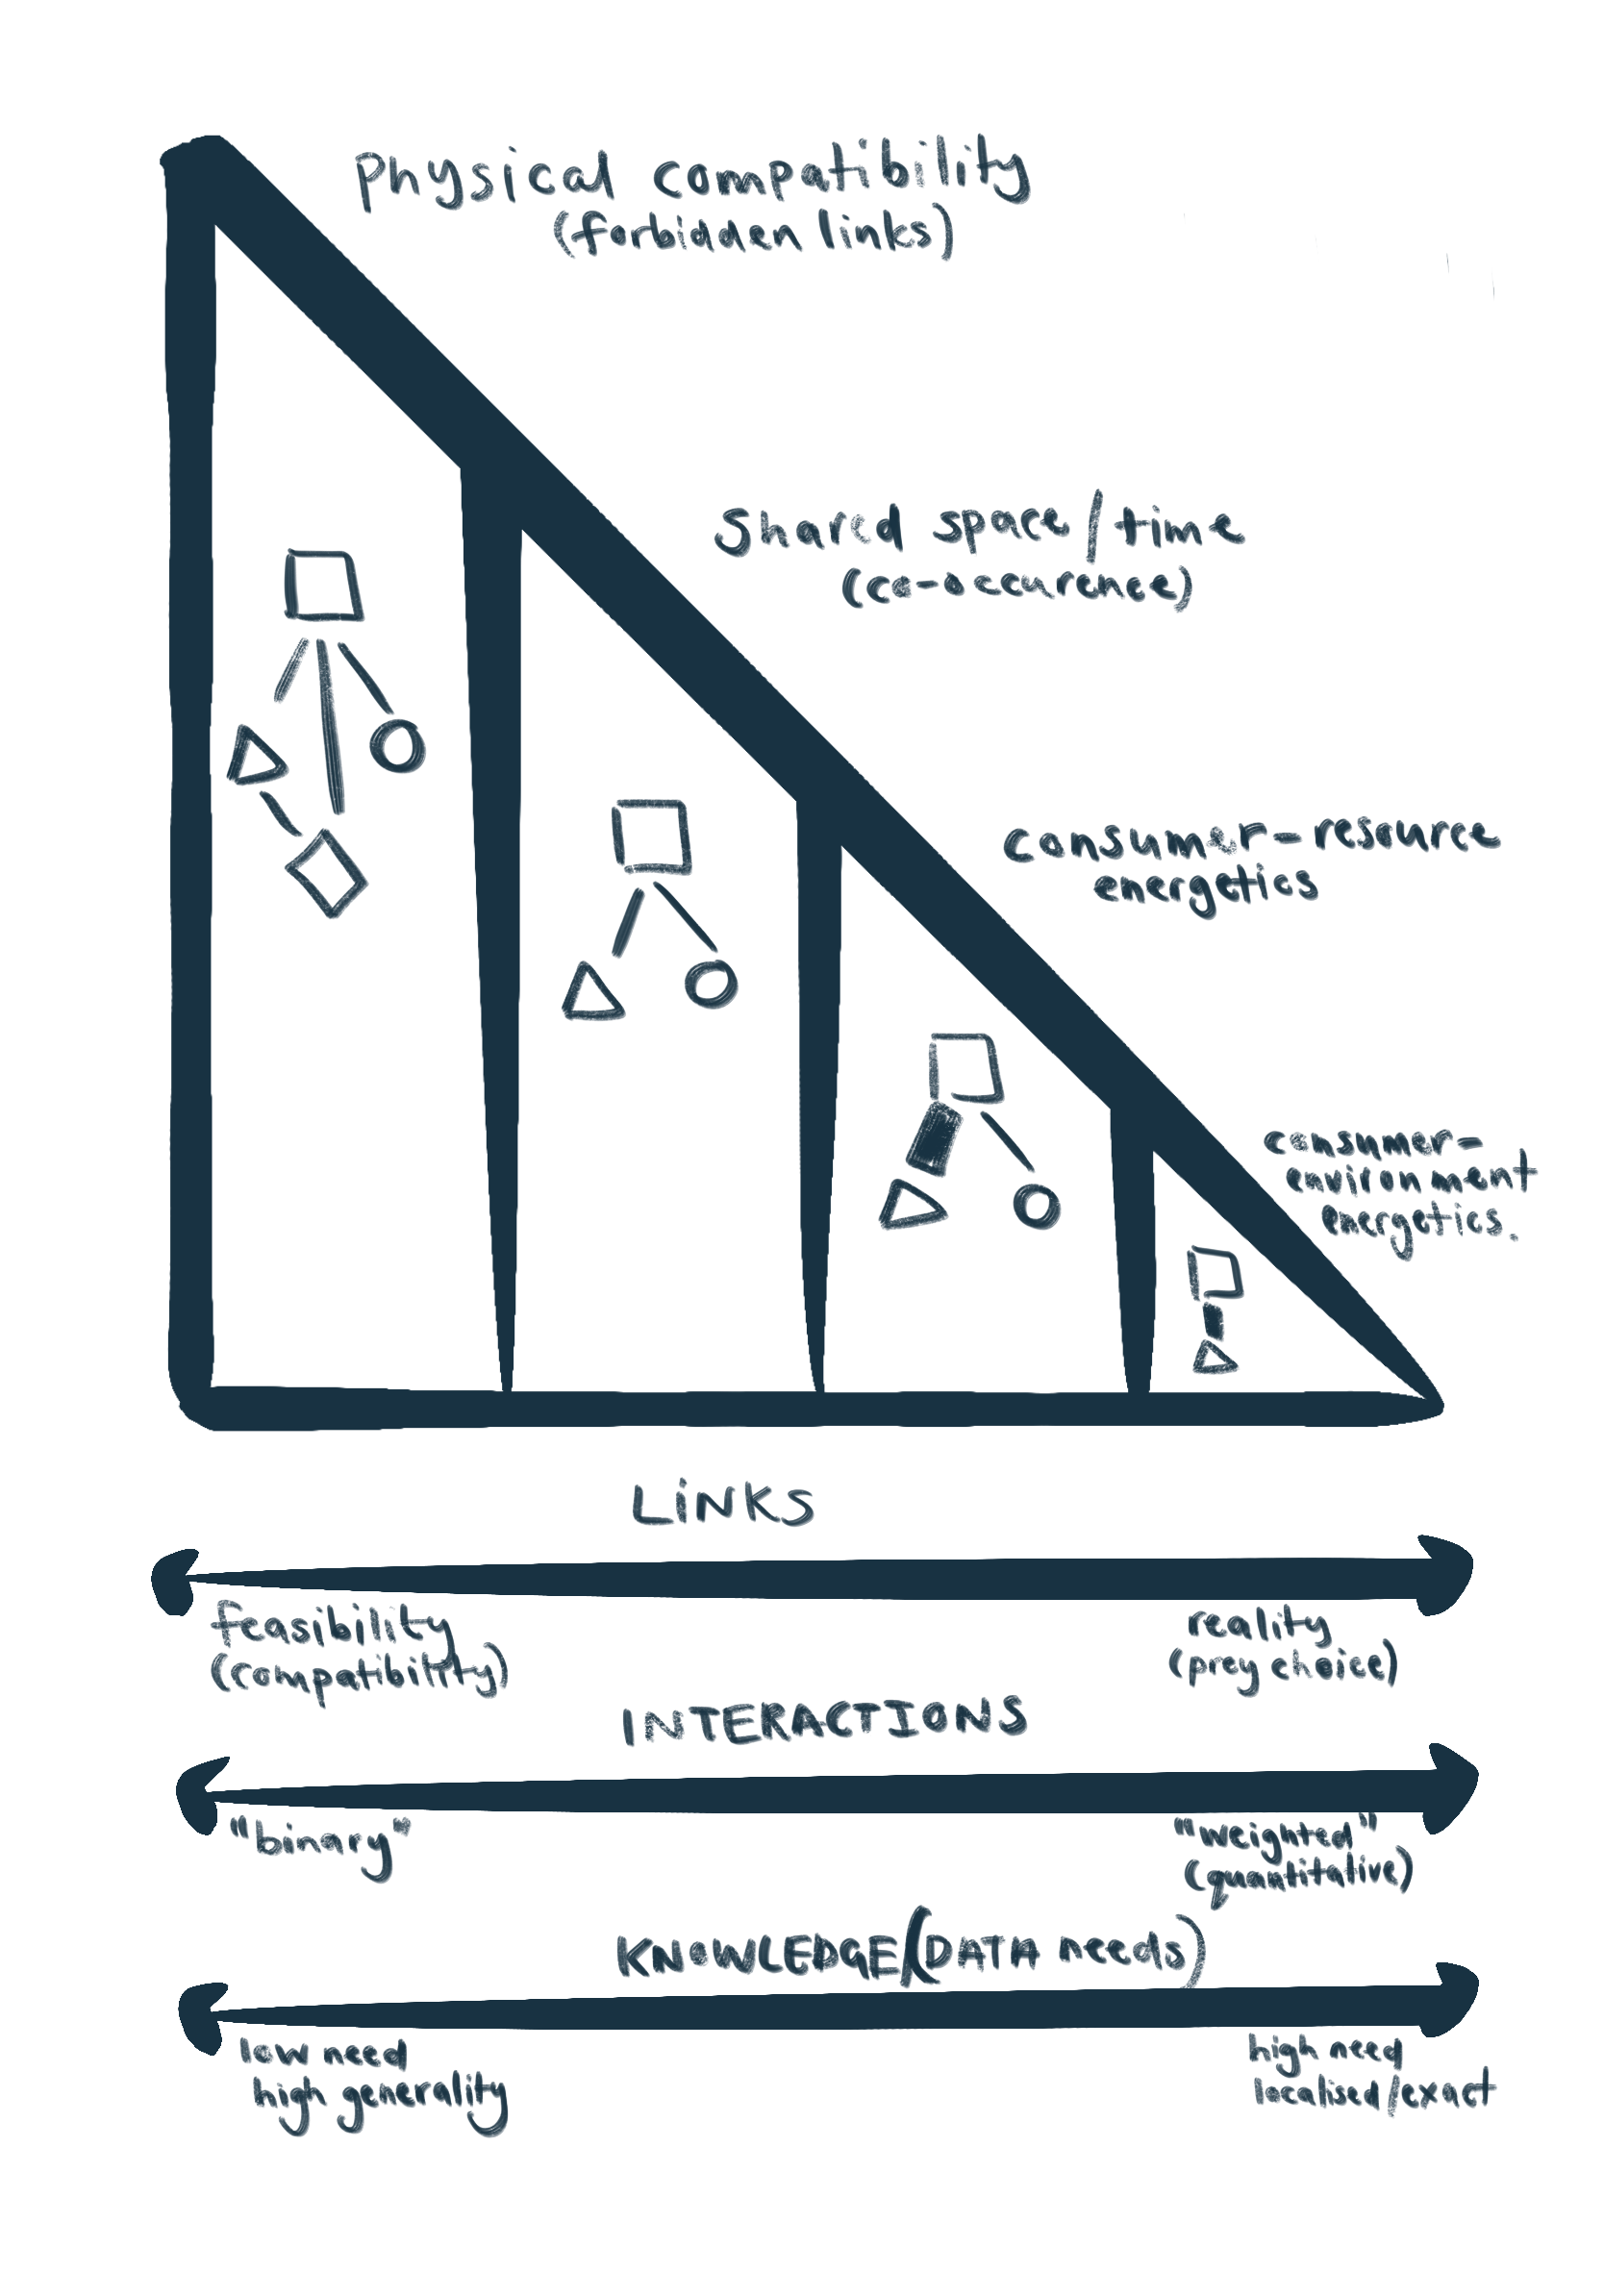 Physical compatibility
(forbidden links)
Shared space/time
(co-occurence)
consumer-resource
energetics
consumer-
environment
energetics.
LiNKS
feasibility
(compatibility)
reality
(prey choice)
INTERACTIONS
"binary"
"weighted"
(quantitative)
KNOWLEDGE(DATA needs)
low need
high generality
high need
localised/exact